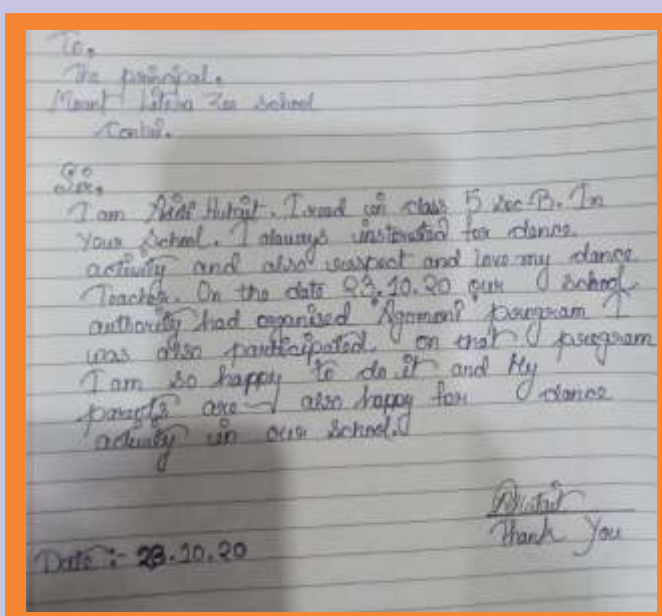 To,
The principal.
Mount Litera Zee School
Contai.
Sir,
I am Hutait. I read in class 5 sec-B. In
Your School. I always insterested for dance
activity and also respect and love my dance
Teacher. On the date 23.10.20 our school
authority had organised "Agomoni" program I
was also participated. on that program
I am so happy to do it and My
parents are also happy for dance
activity in our School.
Thank You
Date :- 23.10.20